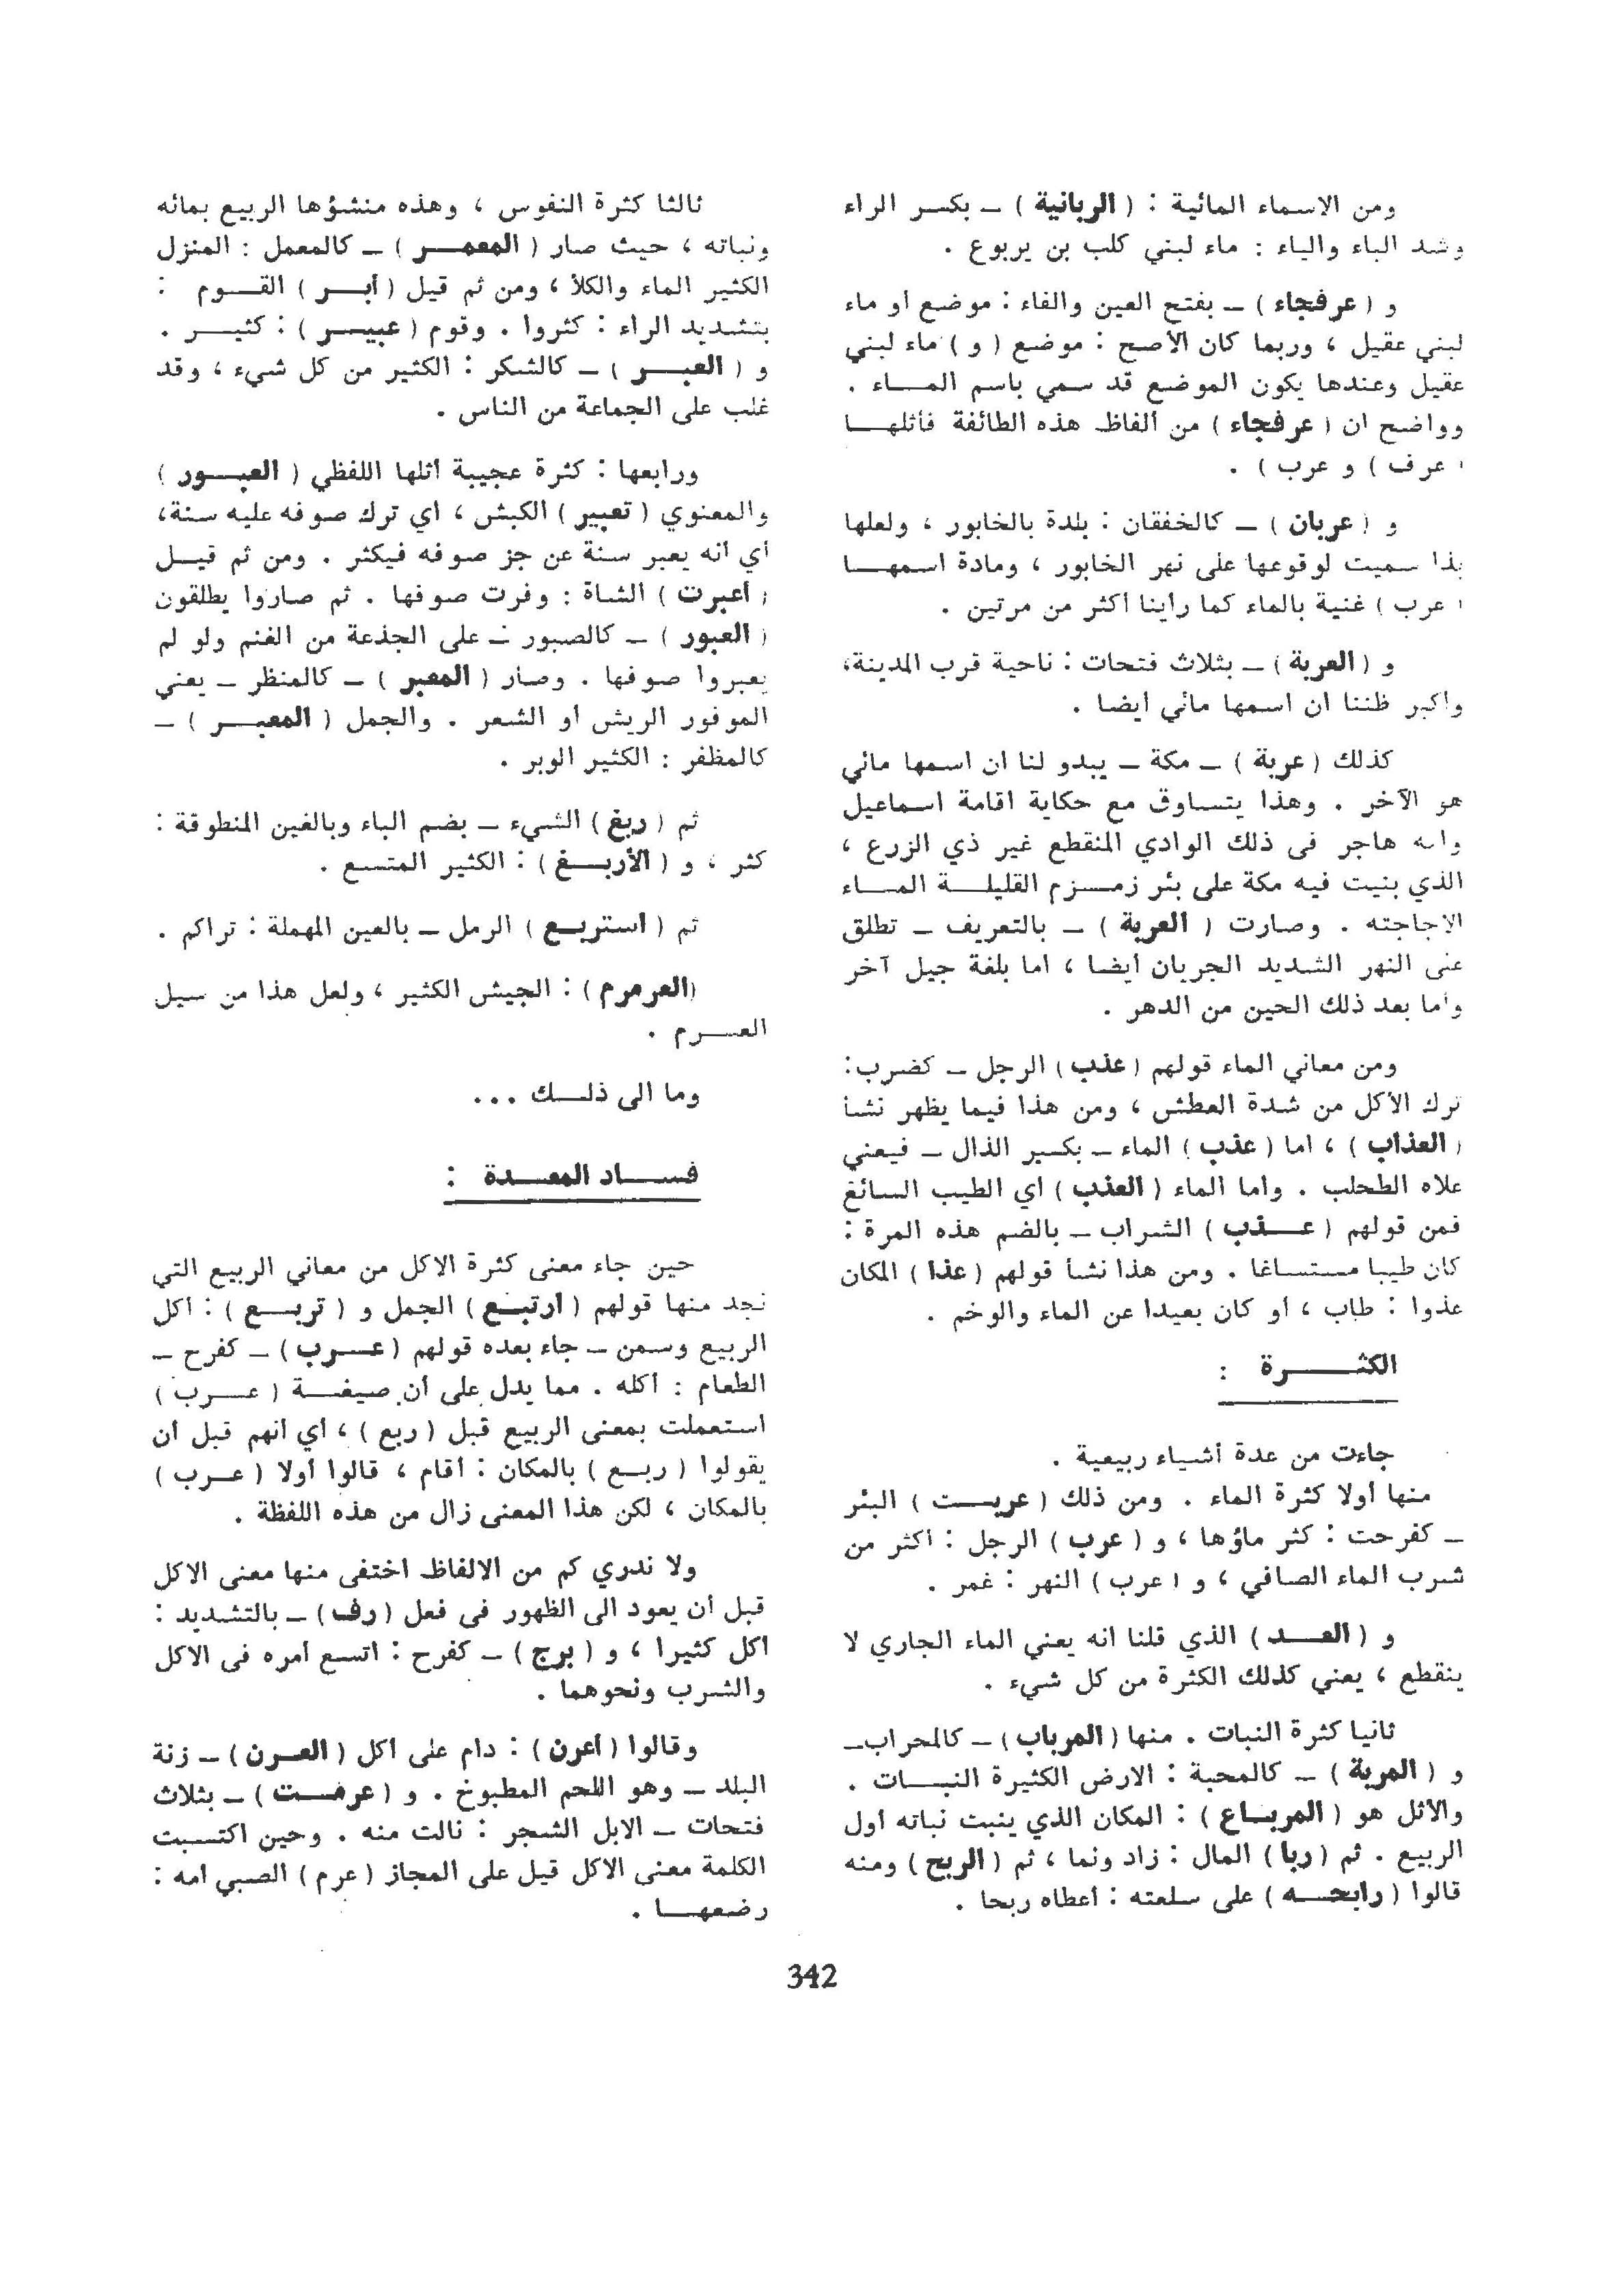 ومن الاسماء المائية : ( الربانية ) – بكسر الراء
وشد الباء والياء : ماء لبني كلب بن يربوع .
و ( عرفجاء ) – بفتح العين والفاء : موضع أو ماء
لبني عقيل ، وربما كان الأصح : موضع ( و ) ماء لبني
عقيل وعندها يكون الموضع قد سمي باسم المـــاء .
وواضح ان ( عرفجاء ) من ألفاظ هذه الطائفة فأثلهــا
( عرف ) و عرب ) .
و ( عربان ) – كالخفقان : بلدة بالخابور ، ولعلها
بذا سميت لوقوعها على نهر الخابور ، ومادة اسمهــا
( عرب ) غنية بالماء كما رأينا أكثر من مرتين .
و ( العربة ) – بثلاث فتحات : ناحية قرب المدينة،
وأكبر ظننا ان اسمها مائي أيضا .
كذلك ( عربة ) – مكة – يبدو لنا ان اسمها مائي
هو الآخر . وهذا يتساوق مع حكاية اقامة اسماعيل
وامه هاجر فى ذلك الوادي المنقطع غير ذي الزرع ،
الذي بنيت فيه مكة على بئر زمــزم القليلــة المــاء
الاجاجته . وصارت ( العربة ) – بالتعريف – تطلق
على النهر الشديد الجريان أيضا ، اما بلغة جيل آخر
وأما بعد ذلك الحين من الدهر .
ومن معاني الماء قولهم ( عذب ) الرجل – كضرب:
ترك الأكل من شدة العطش ، ومن هذا فيما يظهر نشأ
( العذاب ) ، اما ( عذب ) الماء – بكسر الذال – فيعني
علاه الطحلب . واما الماء ( العذب ) أي الطيب السائغ
فمن قولهم ( عــذب ) الشراب – بالضم هذه المرة :
كان طيبا مستساغا . ومن هذا نشأ قولهم ( عذا ) المكان
عذوا : طاب ، أو كان بعيدا عن الماء والوخم .
الكثــــرة :
جاءت من عدة أشياء ربيعية .
منها أولا كثرة الماء . ومن ذلك ( عربــت ) البئر
– كفرحت : كثر ماؤها ، و ( عرب ) الرجل : أكثر من
شرب الماء الصافي ، و ( عرب ) النهر : غمر .
و ( العــد ) الذي قلنا انه يعني الماء الجاري لا
ينقطع ، يعني كذلك الكثرة من كل شيء .
ثانيا كثرة النبات . منها ( المرباب ) – كالمحراب–
و ( المربة ) – كالمحبة : الارض الكثيرة النبــات .
والأثل هو ( المربــاع ) : المكان الذي ينبت نباته أول
الربيع . ثم ( ربا ) المال : زاد ونما ، ثم ( الربح ) ومنه
قالوا ( رابحــه ) على سلعته : أعطاه ربحا .
ثالثا كثرة النفوس ، وهذه منشؤها الربيع بمائه
ونباته ، حيث صار ( المعمــر ) – كالمعمل : المنزل
الكثير الماء والكلأ ، ومن ثم قيل ( أبــر ) القــوم :
بتشديد الراء : كثروا . وقوم ( عبيــر ) : كثيــر .
و ( العبــر ) – كالشكر : الكثير من كل شيء ، وقد
غلب على الجماعة من الناس .
ورابعها : كثرة عجيبة أثلها اللفظي ( العبــور )
والمعنوي ( تعبير ) الكبش ، أي ترك صوفه عليه سنة،
أي أنه يعبر سنة عن جز صوفه فيكثر . ومن ثم قيــل
( أعبرت ) الشاة : وفرت صوفها . ثم صاروا يطلقون
( العبور ) – كالصبور – على الجذعة من الغنم ولو لم
يعبروا صوفها . وصار ( المعبر ) – كالمنظر – يعني
الموفور الريش أو الشعر . والجمل ( المعبــر ) –
كالمظفر : الكثير الوبر .
ثم ( ربغ ) الشيء – بضم الباء وبالغين المنطوقة :
كثر ، و ( الأربــغ ) : الكثير المتسع .
ثم ( استربــع ) الرمل – بالعين المهملة : تراكم .
(العرمرم ) : الجيش الكثير ، ولعل هذا من سيل
العــرم .
وما الى ذلــك ...
فســاد المعــدة :
حين جاء معنى كثرة الاكل من معاني الربيع التي
نجد منها قولهم ( ارتبــع ) الجمل و ( تربــع ) : أكل
الربيع وسمن – جاء بعده قولهم ( عــرب ) – كفرح –
الطعام : أكله . مما يدل على أن صيغــة ( عــرب )
استعملت بمعنى الربيع قبل ( ربع ) ، أي انهم قبل أن
يقولوا ( ربــع ) بالمكان : أقام ، قالوا أولا ( عــرب )
بالمكان ، لكن هذا المعنى زال من هذه اللفظة .
ولا ندري كم من الالفاظ اختفى منها معنى الاكل
قبل أن يعود الى الظهور فى فعل ( رف ) – بالتشديد :
أكل كثيرا ، و ( برج ) – كفرح : اتسع أمره فى الاكل
والشرب ونحوهما .
وقالوا ( أعرن ) : دام على أكل ( العــرن ) – زنة
البلد – وهو اللحم المطبوخ . و ( عرمــت ) – بثلاث
فتحات – الابل الشجر : نالت منه . وحين اكتسبت
الكلمة معنى الاكل قيل على المجاز ( عرم ) الصبي أمه :
رضعهــا .
342